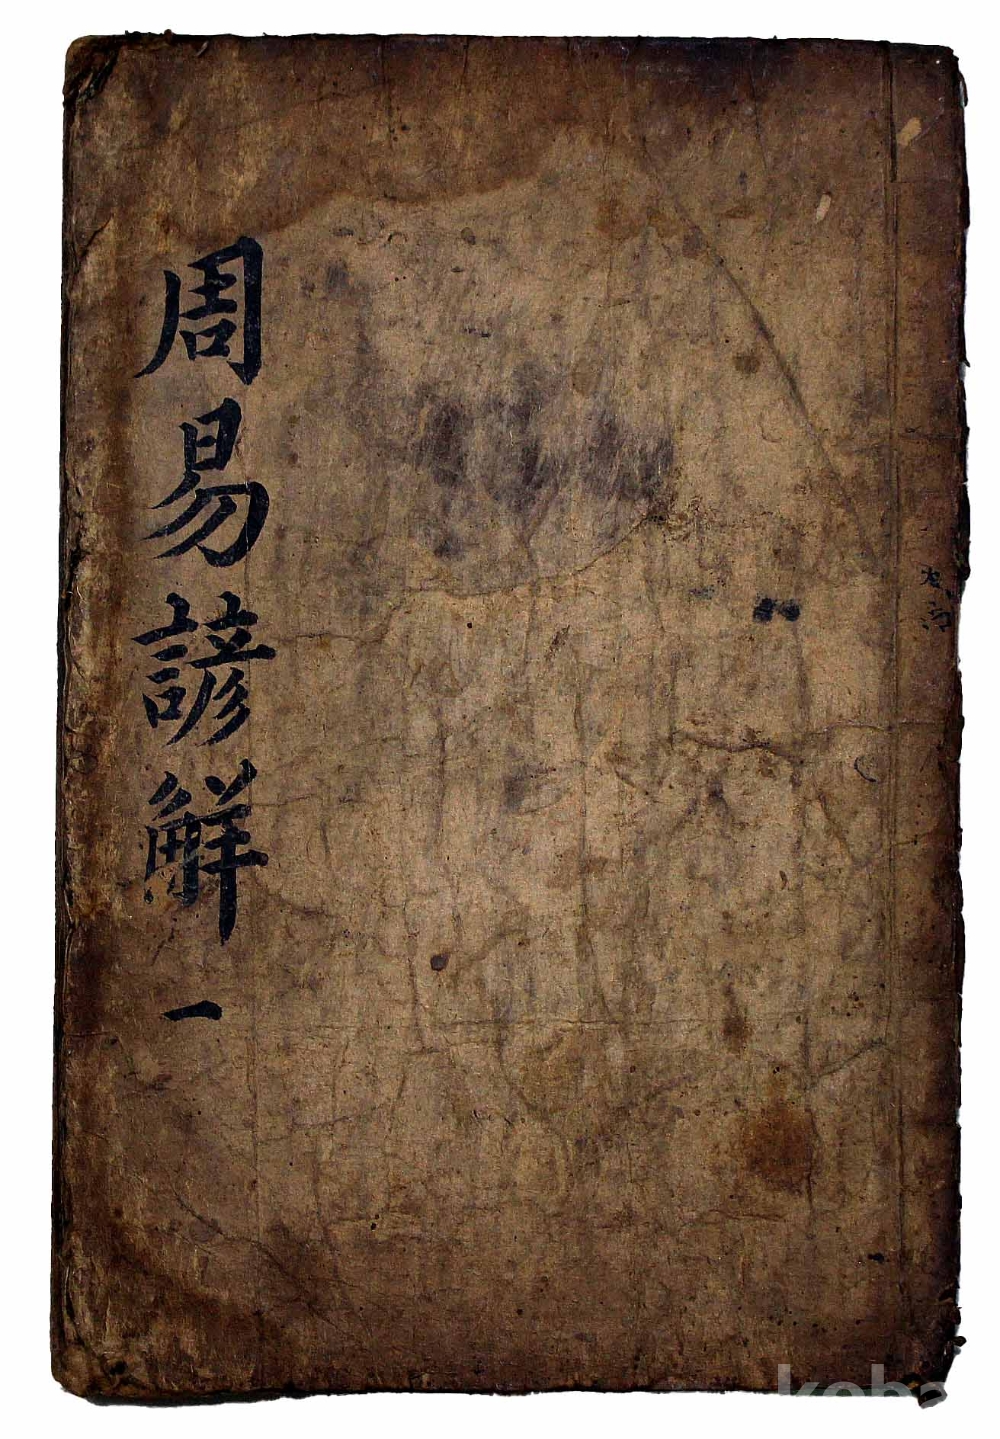 周易諺觧一
koba